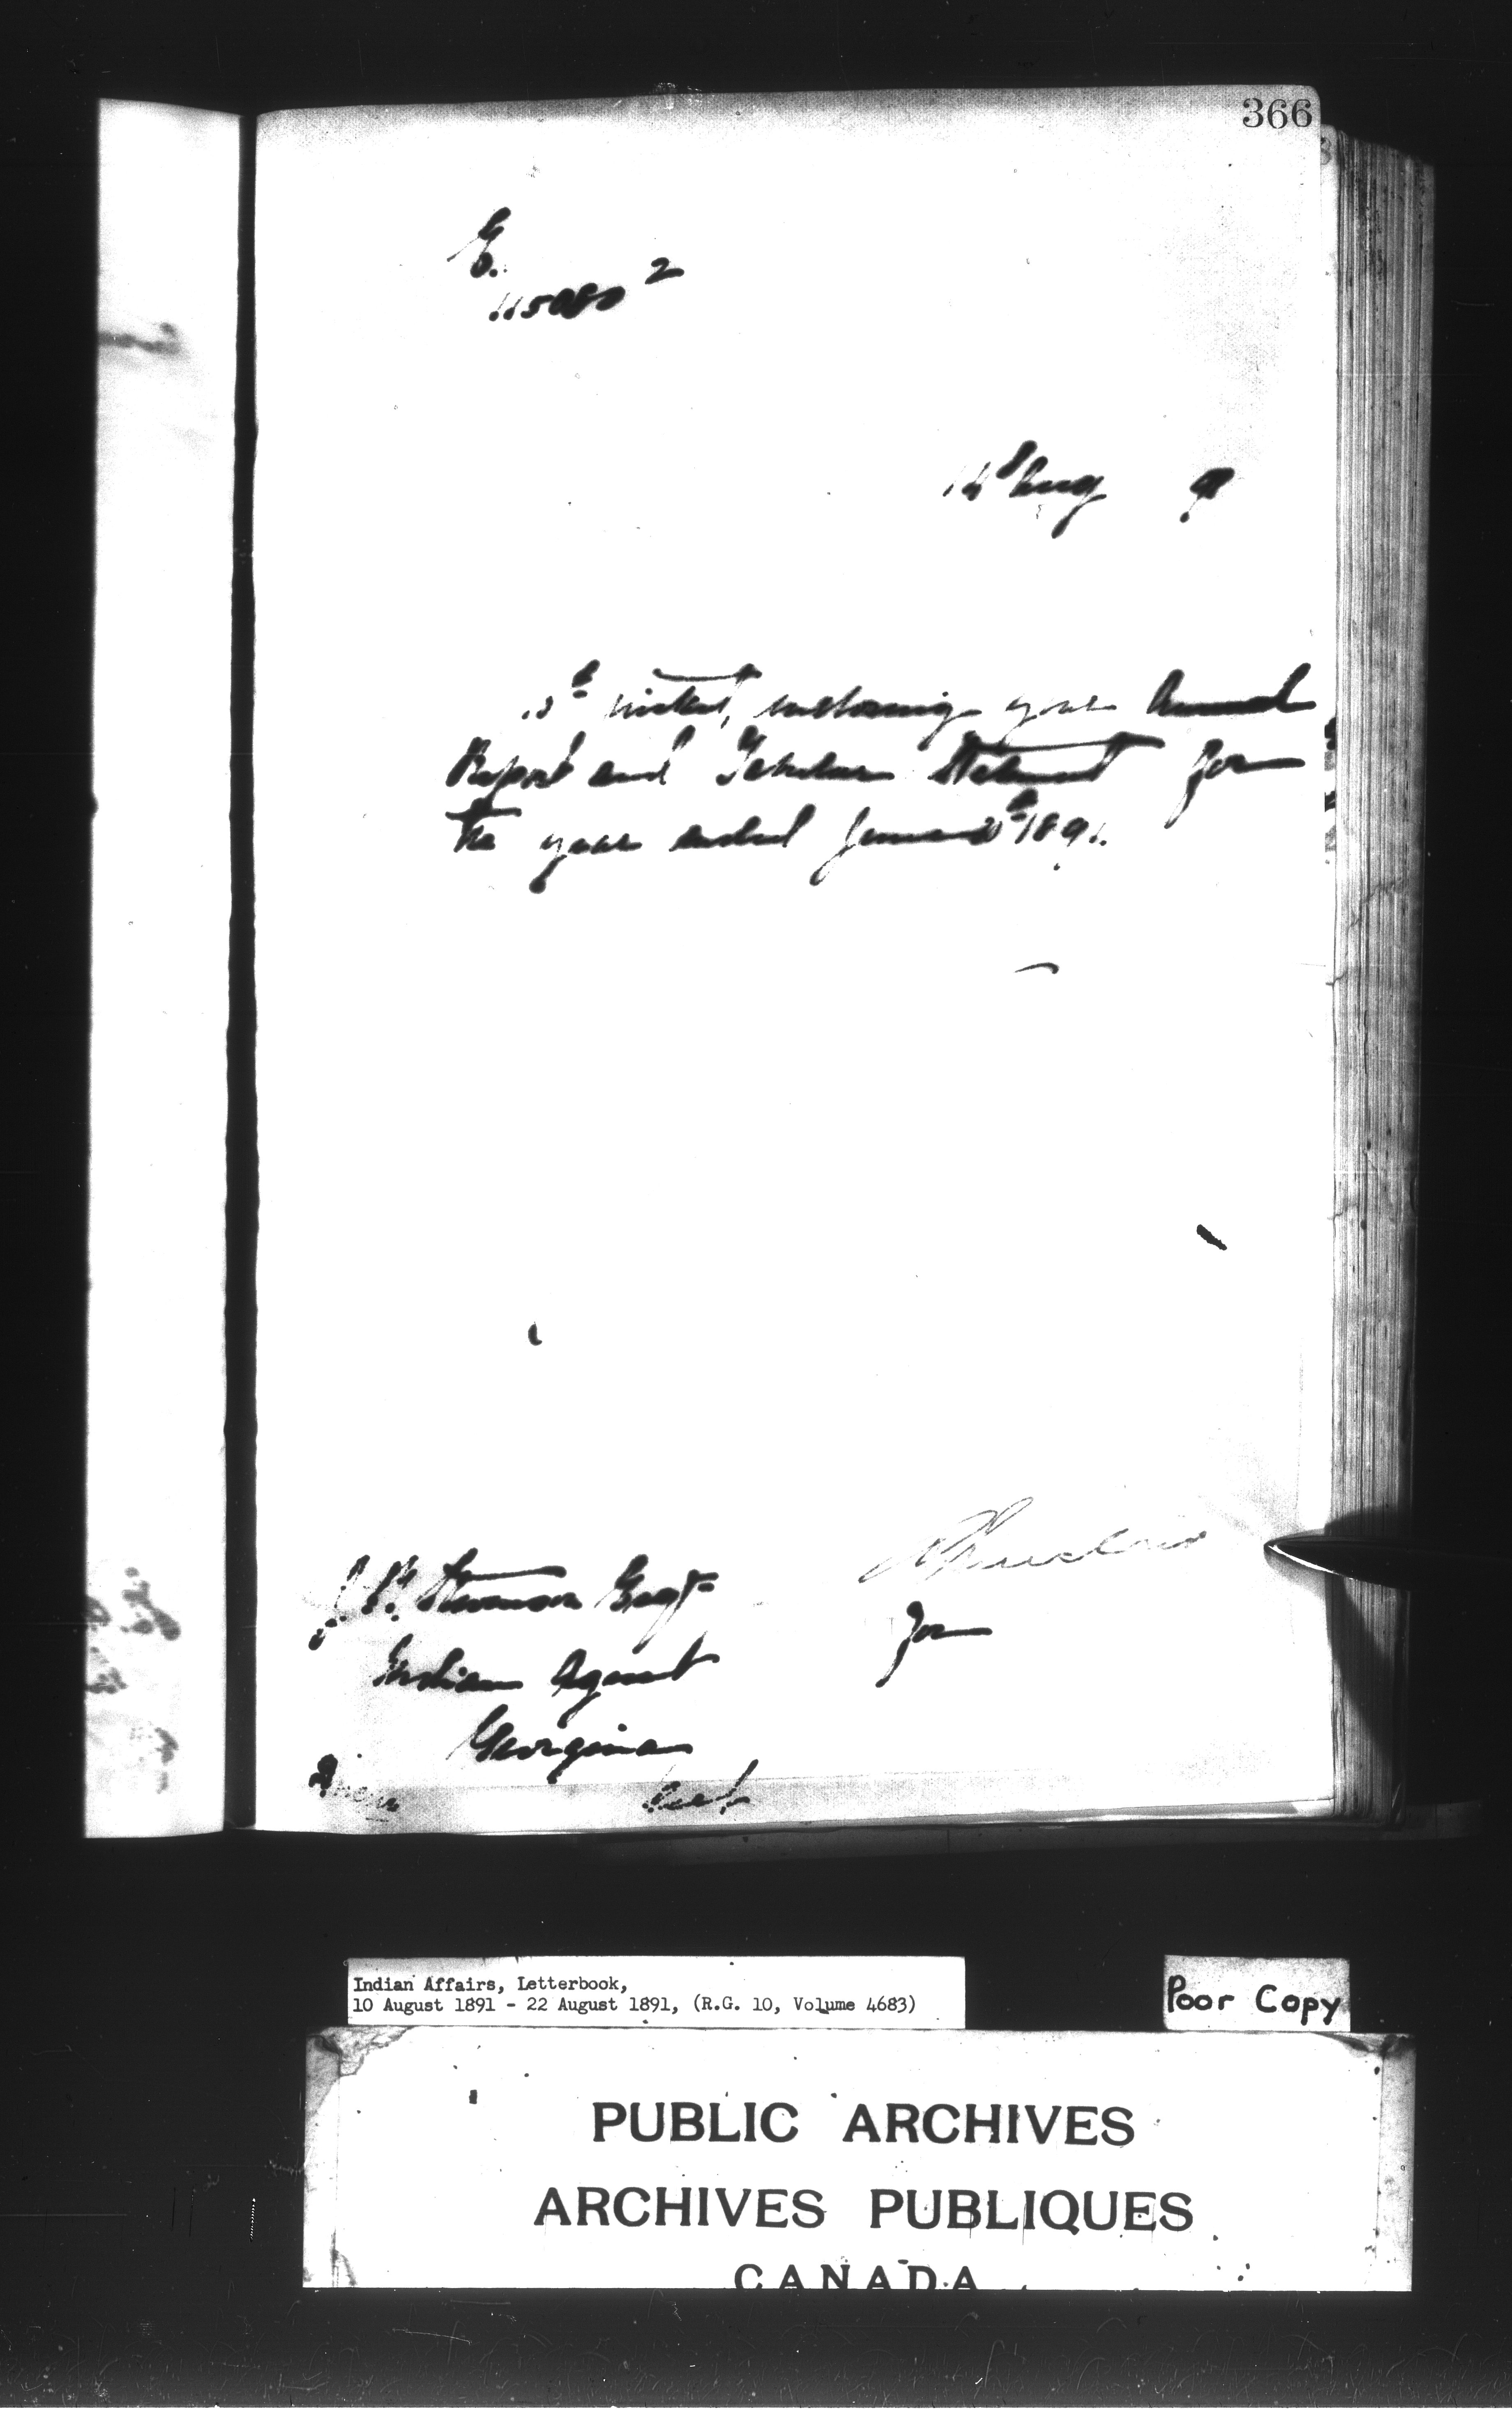 366
E.
115080 2
14th Aug 91
13th instant, enclosing your Annual
Report and Tabular Statement for
the year ended June 30th 1891.
J. R. Stevenson Esqr
for
Indian Agent
Georgina
Ont
Indian Affairs, Letterbook,
10 August 1891 - 22 August 1891, (R.G. 10, Volume 4683)
Poor Copy
PUBLIC ARCHIVES
ARCHIVES PUBLIQUES
CANADA